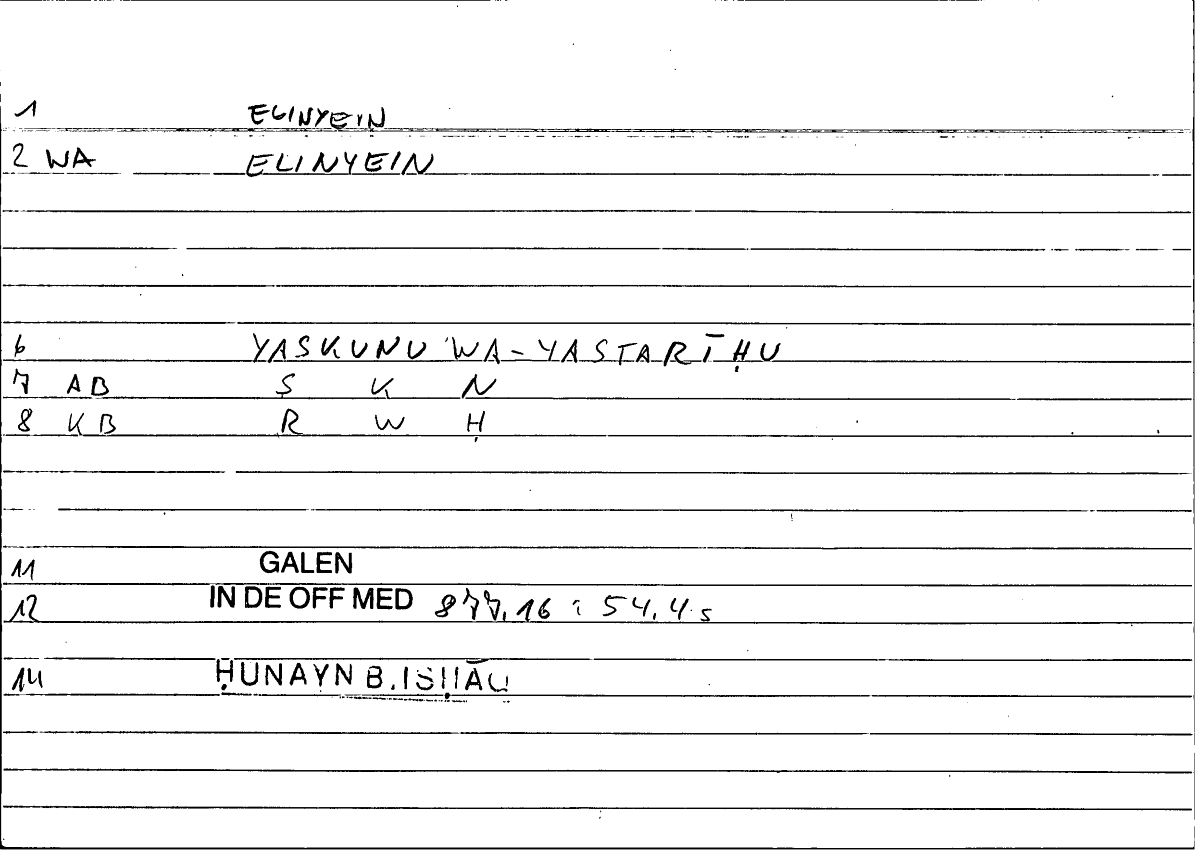 1 ELINYEIN
2 WA ELINYEIN
6 YASKUNU WA-YASTARĪḤU
7 AB S K N
8 KB R W Ḥ
11 GALEN
12 IN DE OFF MED 877.16 : 54.4 s
14 ḤUNAYN B. ISḤĀQ